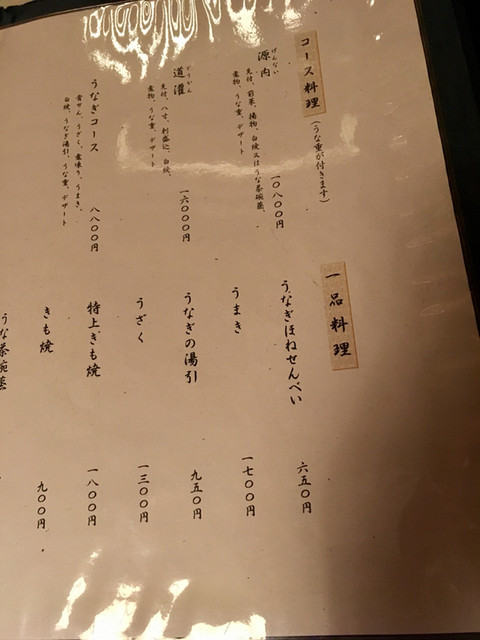 コース料理(うな重が付きます)
源内 一〇八〇〇円
げんない
先付、前菜、揚物、白焼又はうな茶碗蒸、
煮物、うな重、デザート
道灌 一六〇〇〇円
どうかん
先付、八寸、刺盛に、白焼、
煮物、うな重、デザート
うなぎコース 八八〇〇円
骨せん、うざく、煮凍り、うまき、
白焼、うなぎ湯引、うな重、デザート
一品料理
うなぎほねせんべい 六五〇円
うまき 一七〇〇円
うなぎの湯引 九五〇円
うざく 一三〇〇円
特上ぎも焼 一八〇〇円
きも焼 九〇〇円
うな茶碗蒸